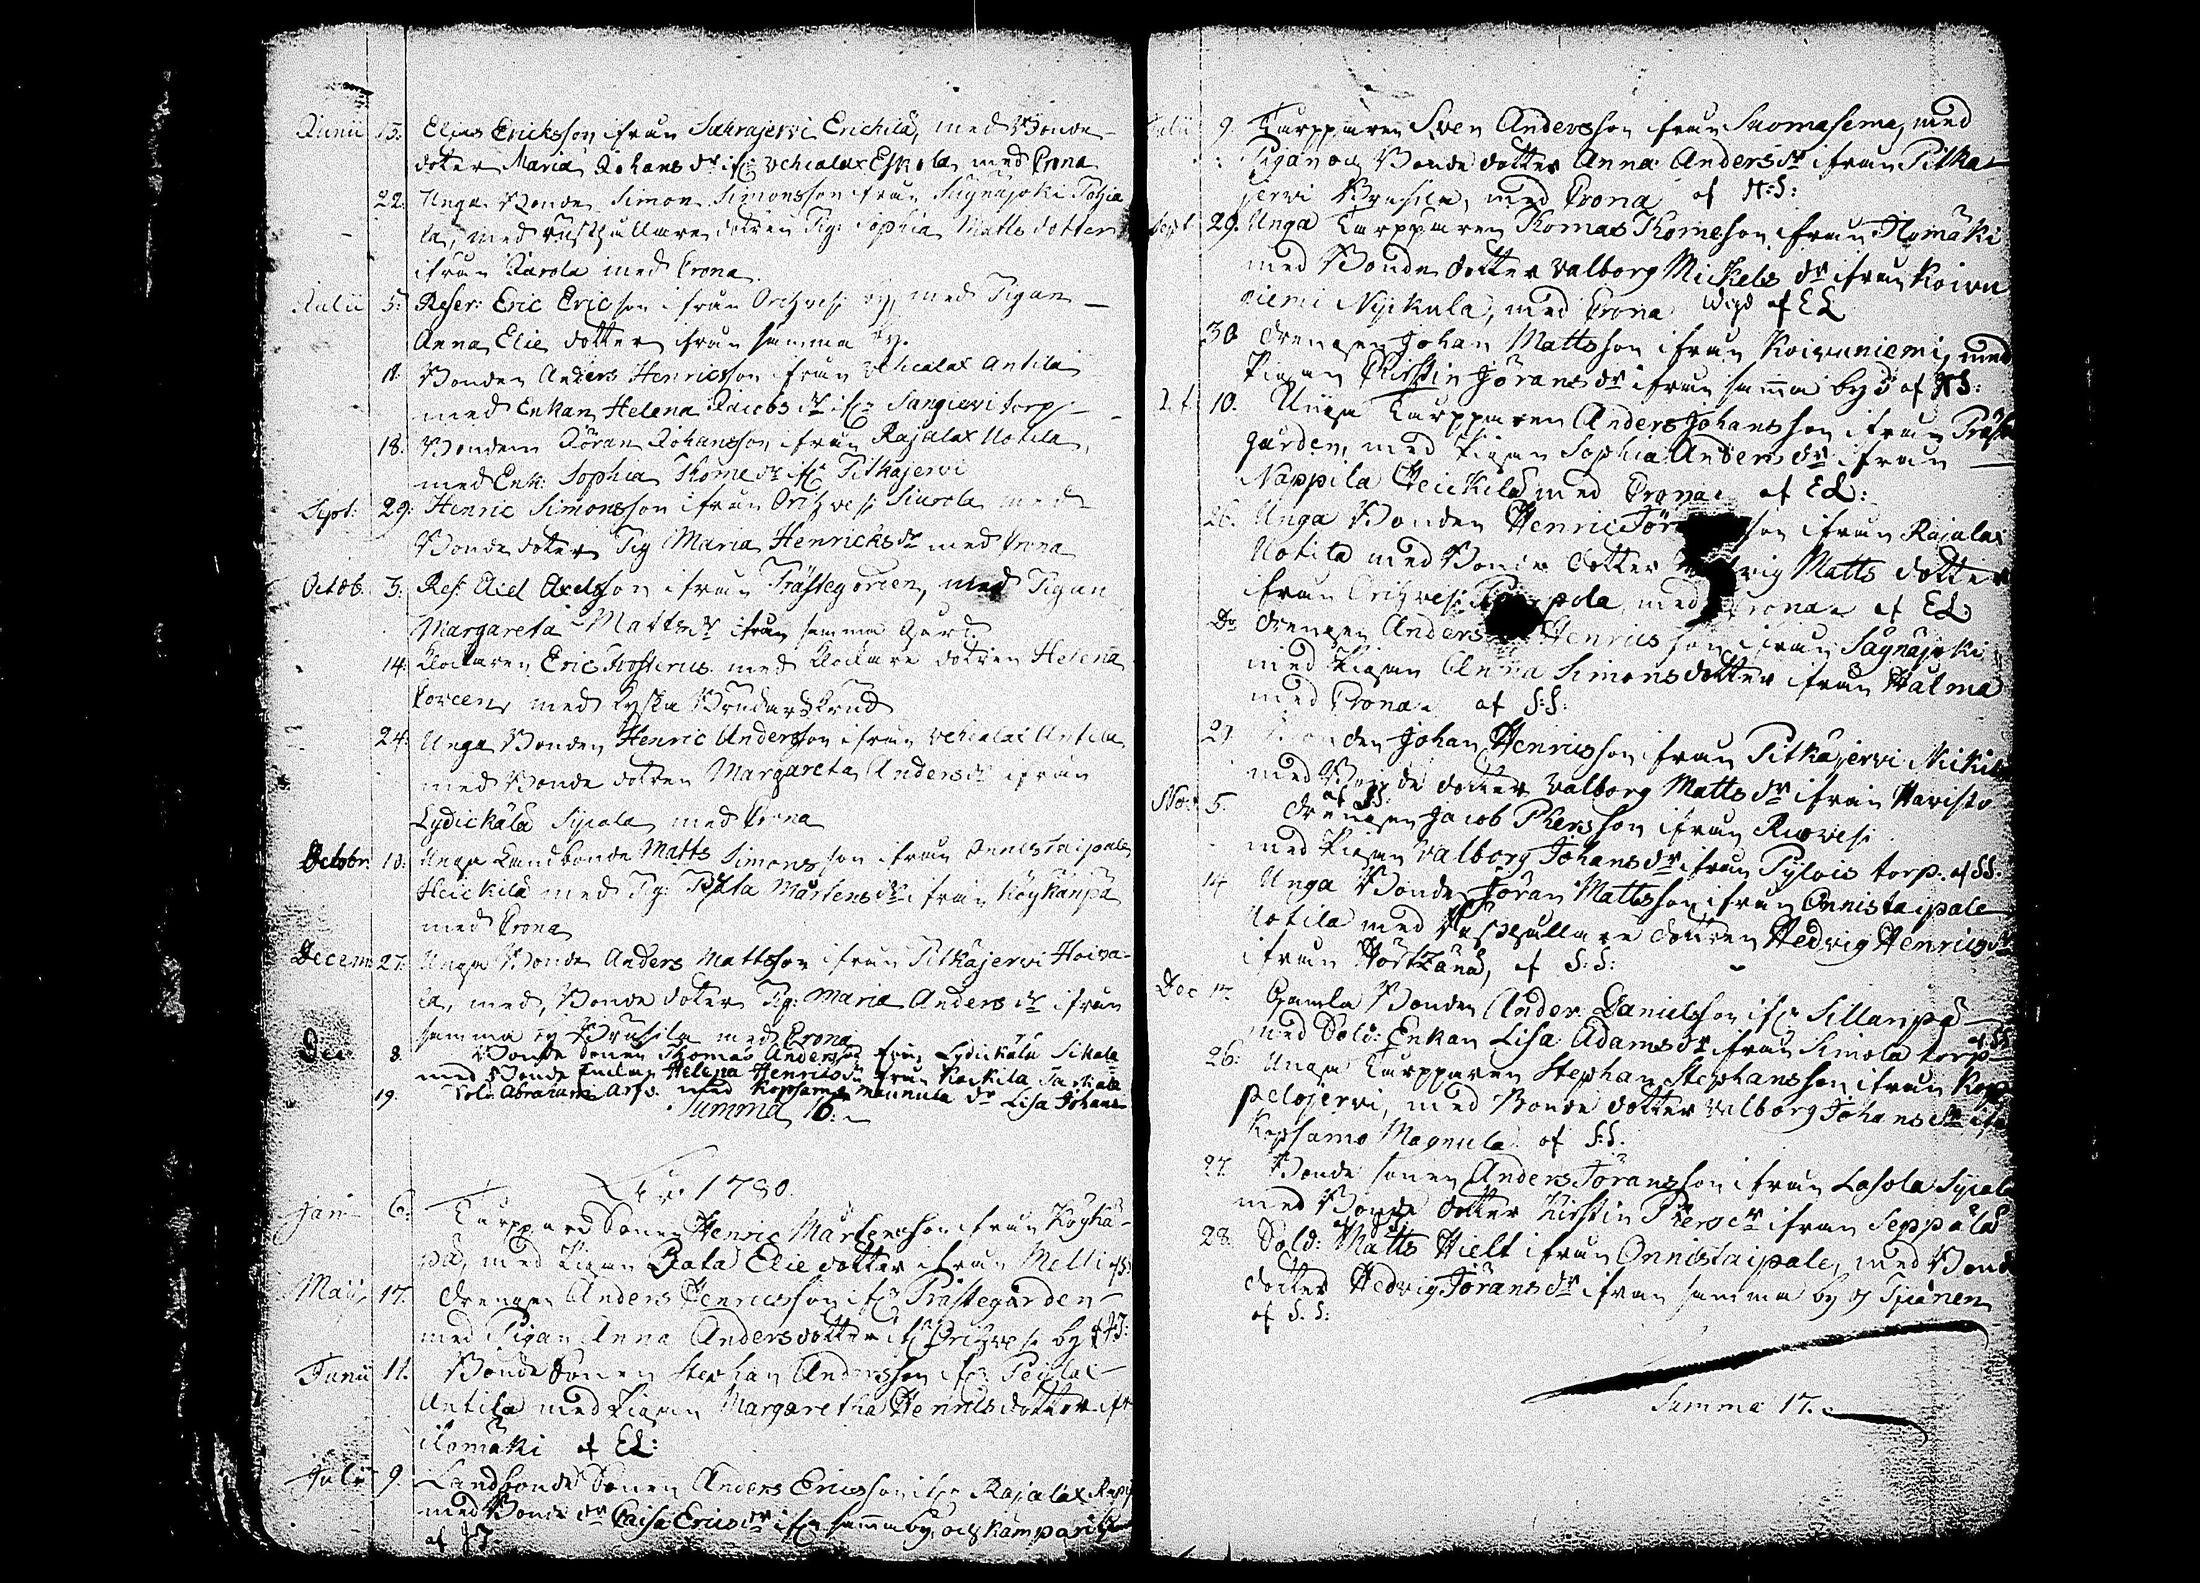 Junii 13. Elias Ericksson ifrån Sackrajervi Erickilä, med Bonde-
doter Maria Johans dr ifr Vehcalax Eskola med Crona
22. Unga Bonden Simon Simonsson ifrån Säynäjoki
la, med rusthållare dotren Pig: Sophia Matts dotter
ifrån Karola med Crona
Julii 5. Reser: Eric Ericsson ifrån Oritzvesi by med Pigan
Anna Elie dotter ifrån samma by.
11. Bonden Anders Henricsson ifrån Vehcalax Antila
med Enkan Helena Jacobs dr ifr Sangiervi torp
18. Bonden Jöran Johansson ifrån Rajalax Uotila,
med Enk: Sophia Thome dr ifr Pitkäjervi
Sept: 29. Henric Simonsson ifrån Oritzvesi Siurola med
Bonde doter Pig Maria Henricks dr med Crona
Octob. 3. Res: Axel Axelsson ifrån Prästegården, med Pigan
Margareta Matts dr ifrån samma Gård.
14. Klockaren Eric med Klockare dotren Helena
med Tyska Brudarskrud
24. Unga Bonden Henric Andersson ifrån Vehcalax Antila
med Bonde dotren Margareta Anders dr ifrån
Lydickälä Sipola med Crona
Octobr: 10. Unga Landbonde Matts Simonsson ifrån Onnistaipale
Heickilä med Pig: Mårtens dr ifrån Köykänpä
med Crona
Decem 27. Unga Bonde Anders Mattsson ifrån Pitkäjervi Hoica-
la, med, Bonde doter Pig: Maria Anders dr ifrån
samma by Brusila med Crona
Dec 8. Bonde sonen Thomas Andersson från Lydickälä Sikala
med Bonde Enkan Helena Henrics dr från
19. Sold: Abraham med Kopsamo Maunula dr Lisa Johans
Summa 16.
År 1780.
Jan 6. Torppare Sonen Henric Mårtensson ifrån Köykä-
pä, med Pigan Beata Elie dotter ifrån Melli
Maij 17. Drengen Anders Henricsson ifr Prästegården
med Pigan Anna Andersdotter ifr Oritzvesi by
Junii 11. Bonde Sonen Stephan Andersson ifr
Antila med Pigan Margaretha Henricsdotter ifr
Ilomäki af EL:
Julii 9. Landbonde Sonen Anders Ericsson ifr Rajalax
med Bonde dr Caisa Erics dr ifr samma by, och
af
Julii 9 Torpparen Sven Andersson ifrån Suomasema, med
Pigan och Bonde dotter Anna Anders dr ifrån Pitkä-
jervi Brusila, med Crona af
Sept 29. Unga Torpparen Thomas Thomeson ifrån Ilomäki
med Bonde dotter Valborg Mickels dr ifrån Koivu
niemi Nyikula, med Crona Wigd af EL
30 Drengen Johan Mattsson ifrån Koivuniemi, med
Pigan Kirstin Jörans dr ifrån samma by af
10. Unga Torpparen Anders Johansson ifrån Präste
gården, med Pigan Sophia Anders dr ifrån
Näppilä Heickilä med Crona af EL:
26. Unga Bonden Henric son ifrån Rajalax
Uotila med Bonde dotter Matts dotter
ifrån Oritzvesi med Crona af EL
Do Drengen Anders Henricsson ifrån Säynäjoki
med Pigan Anna Simonsdotter ifrån Halma
med Crona af S:S:
27 Bonden Johan Henricsson ifrån Pitkäjervi Mickil
med Bonde dotter Valborg Matts dr ifrån Havisto
af SS.
Nov. 5. Drengen Jacob Phersson ifrån Ruovesi
med Pigan Valborg Johans dr ifrån Pylois torp. af SS.
14 Unga Bonden Jöran Mattsson ifrån Onnistaipale
Uotila med Rusthållare dotren Hedvig Henrics dr
ifrån Hörtzänä, af S:S:
Dec 17. Gamla Bonden Anders Danielsson ifr Sillanpä
med Sold: Enkan Lisa Adams dr ifrån Simola torp SS
26: Unga Torpparen Stephan Stephansson ifrån
pelojervi, med Bonde dotter Valborg Johans dr ifr
Kopsamo Magnula af S:S.
27. Bonde sonen Anders Jöransson ifrån Lasola
med Bonde dotter Kirstin Phers dr ifrån Seppälä
28. Sold: Matts Hielt ifrån Onnistaipale, med Bonde
dotter Hedvig Jörans dr ifrån samma by
af S.S:
Summa 17.